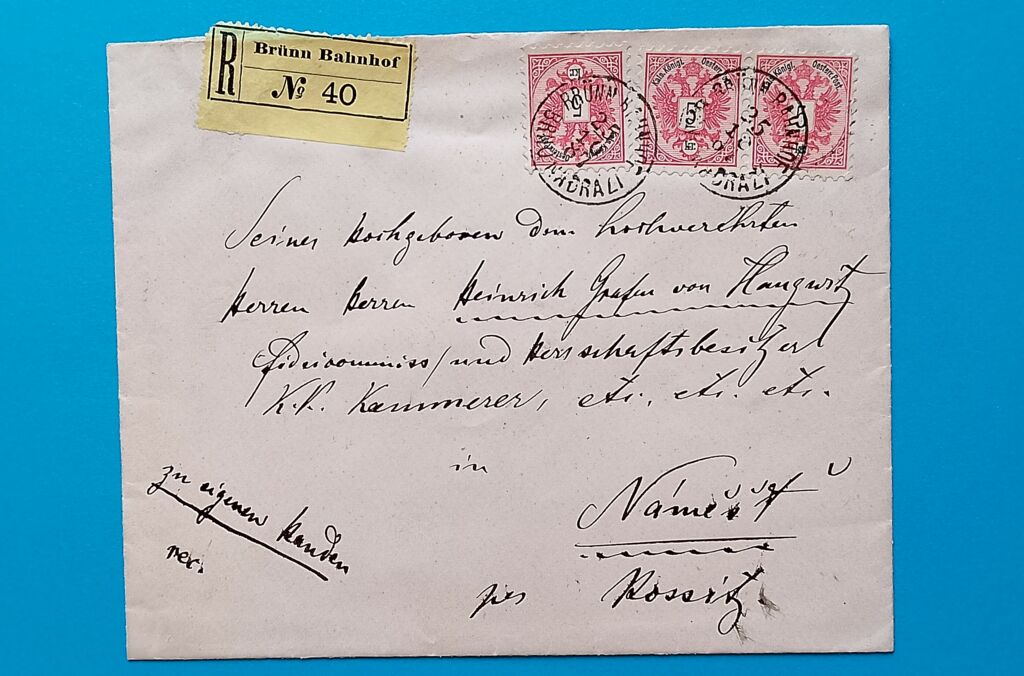 R
Brünn Bahnhof
№ 40
Kais. Königl. Oesterr. Post.
5 KR
BRÜNN BAHNHOF
BRNO NÁDRAŽÍ
Seiner Hochgeboren dem hochverehrten
Herren Herren Heinrich Grafen von Haugwitz
Fideicommiss/und Herrschaftsbesitzer
K.K. Kammerer, etc. etc. etc.
in
Náměšť
zu eigenen Handen
rec.
per Rossitz.